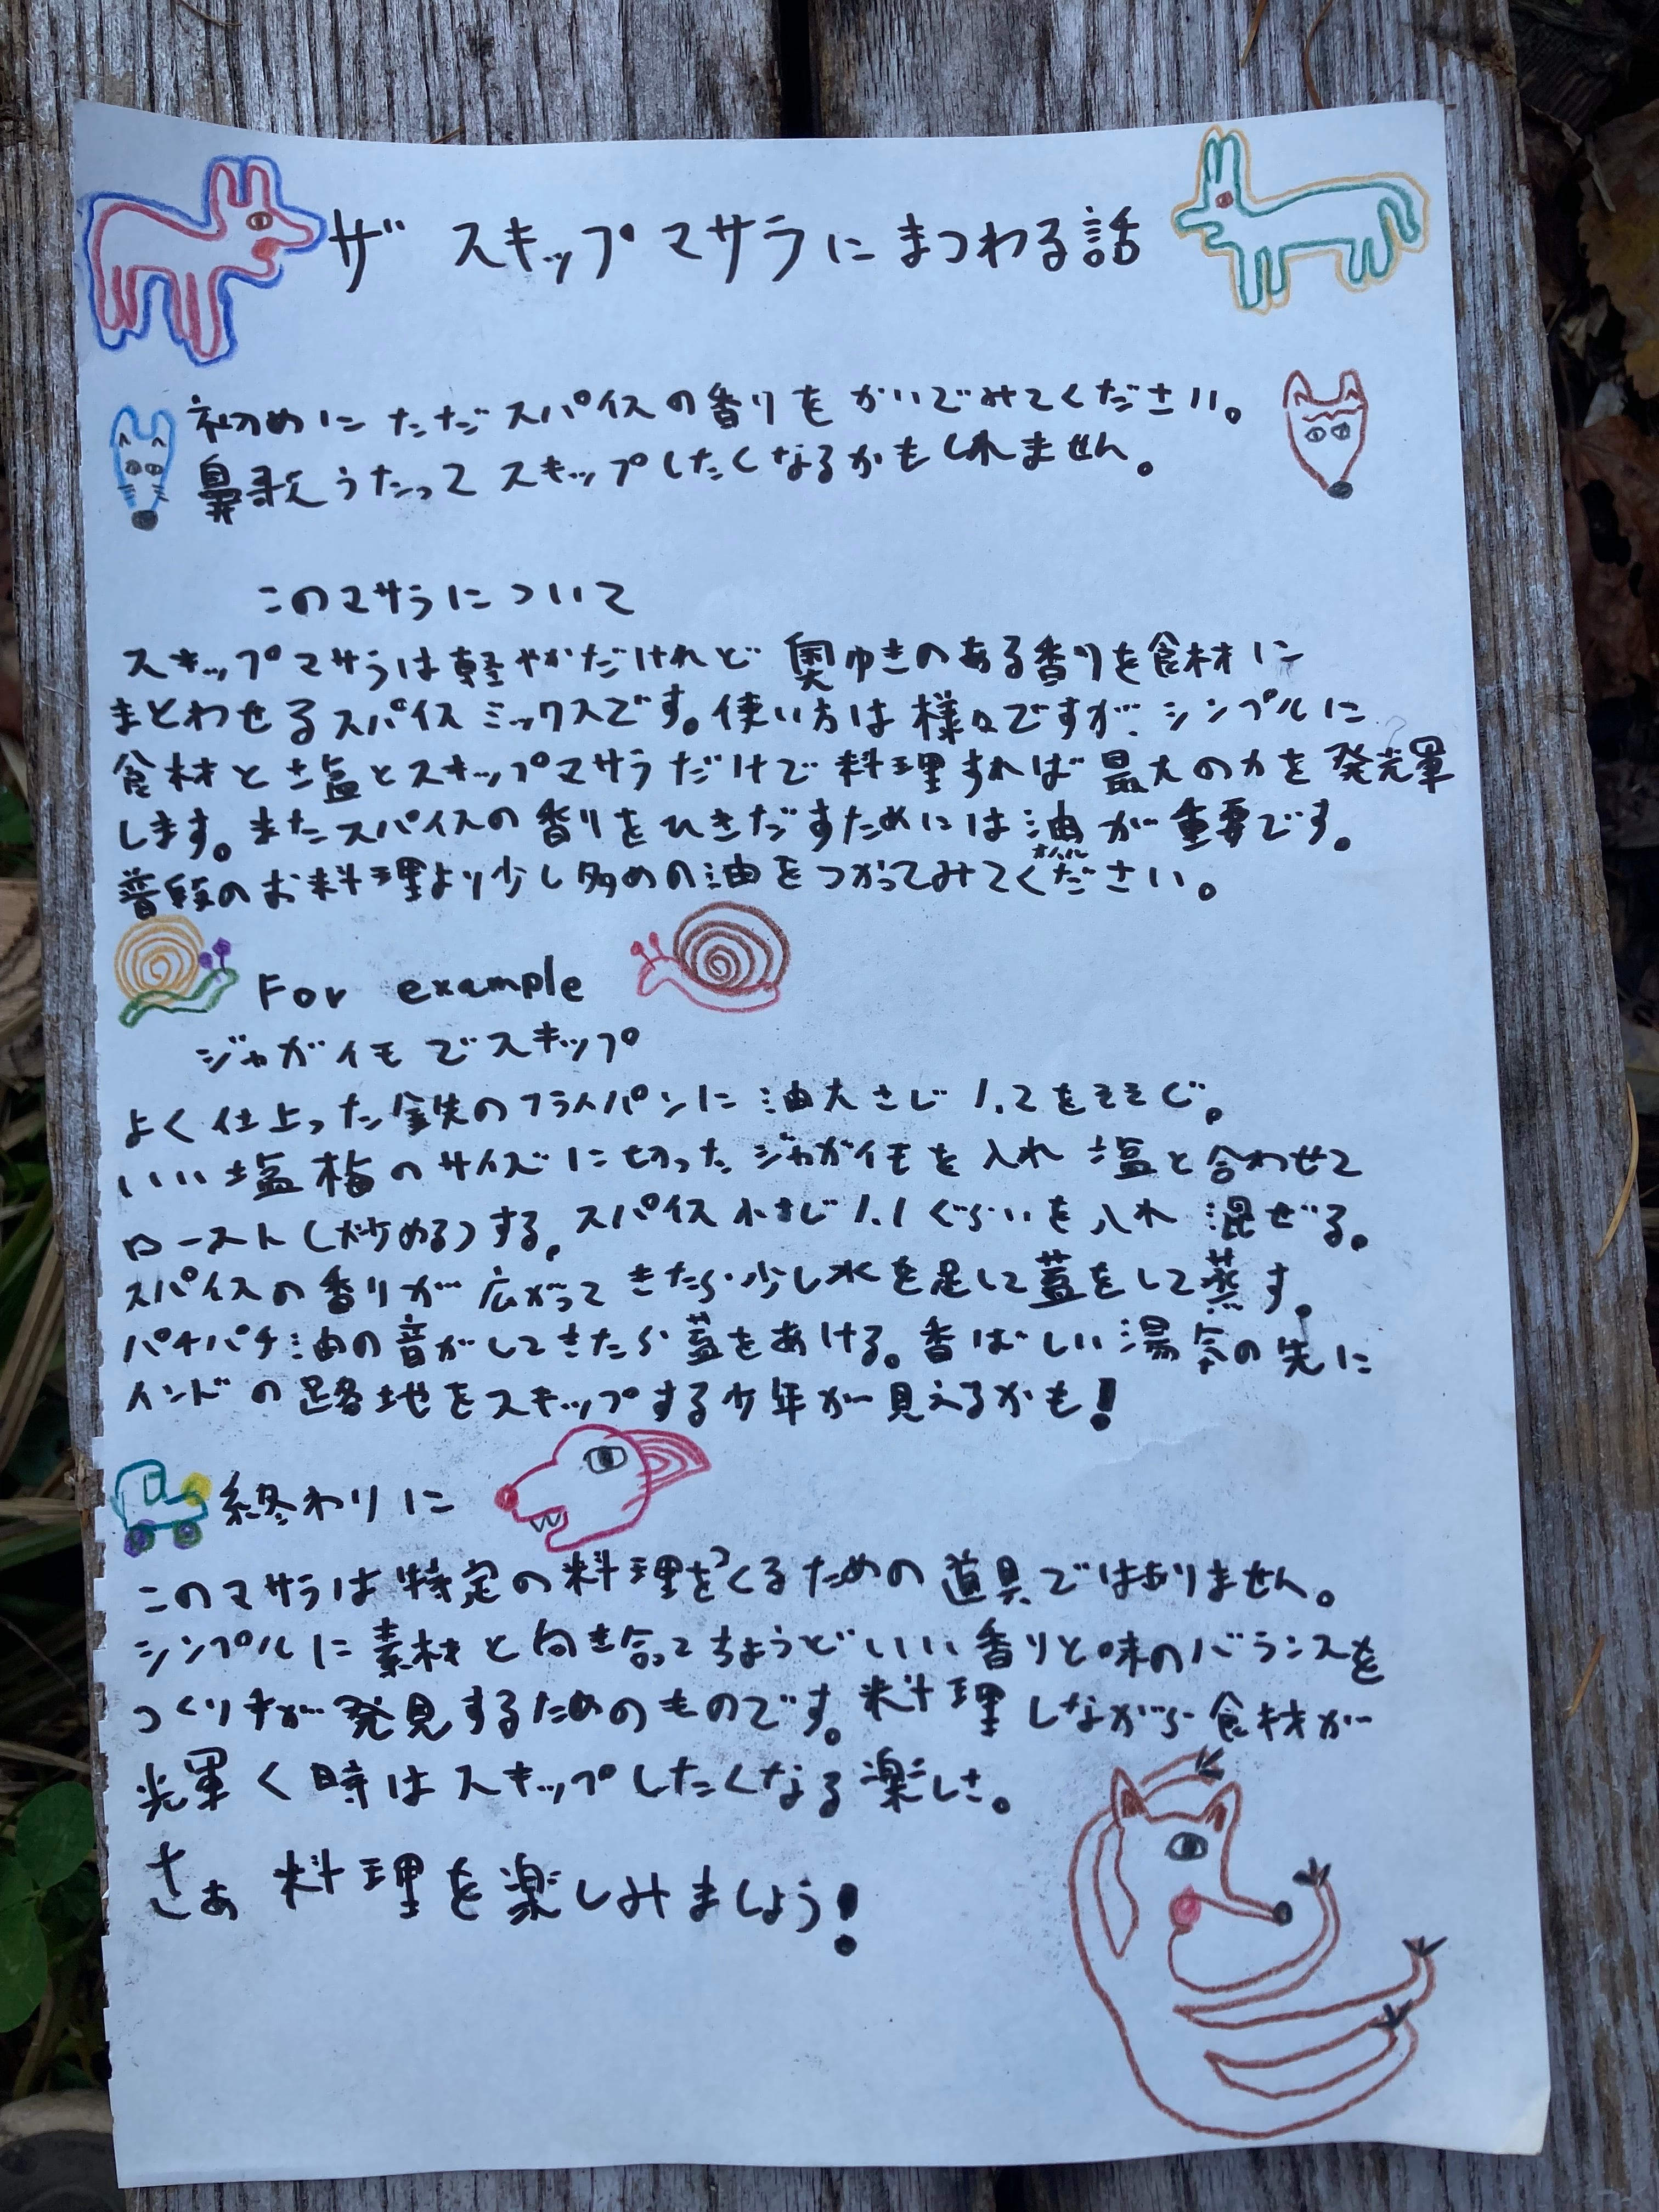 ザ スキップマサラにまつわる話
初めにただスパイスの香りをかいでみてください。
鼻歌うたってスキップしたくなるかもしれません。
このマサラについて
スキップマサラは軽やかだけれど奥ゆきのある香りを食材に
まとわせるスパイスミックスです。使い方は様々ですが、シンプルに
食材と塩とスキップマサラだけで料理すれば最大の力を発揮
します。またスパイスの香りをひきだすためには油が重要です。
オイル
普段のお料理より少し多めの油をつかってみてください。
For example
ジャガイモでスキップ
よく仕上った鉄のフライパンに油大さじ1.2をそそぐ。
いい塩梅のサイズに切ったジャガイモを入れ塩と合わせて
ロースト(炒める)する。スパイス小さじ1.1ぐらいを入れ混ぜる。
スパイスの香りが広がってきたら少し水を足して蓋をして蒸す。
パチパチ油の音がしてきたら蓋をあける。香ばしい湯気の先に
インドの路地をスキップする少年が見えるかも!
終わりに
このマサラは特定の料理をつくるための道具ではありません。
シンプルに素材と向き合ってちょうどいい香りと味のバランスを
つくり手が発見するためのものです。料理しながら食材が
輝く時はスキップしたくなる楽しさ。
さぁ 料理を楽しみましょう!